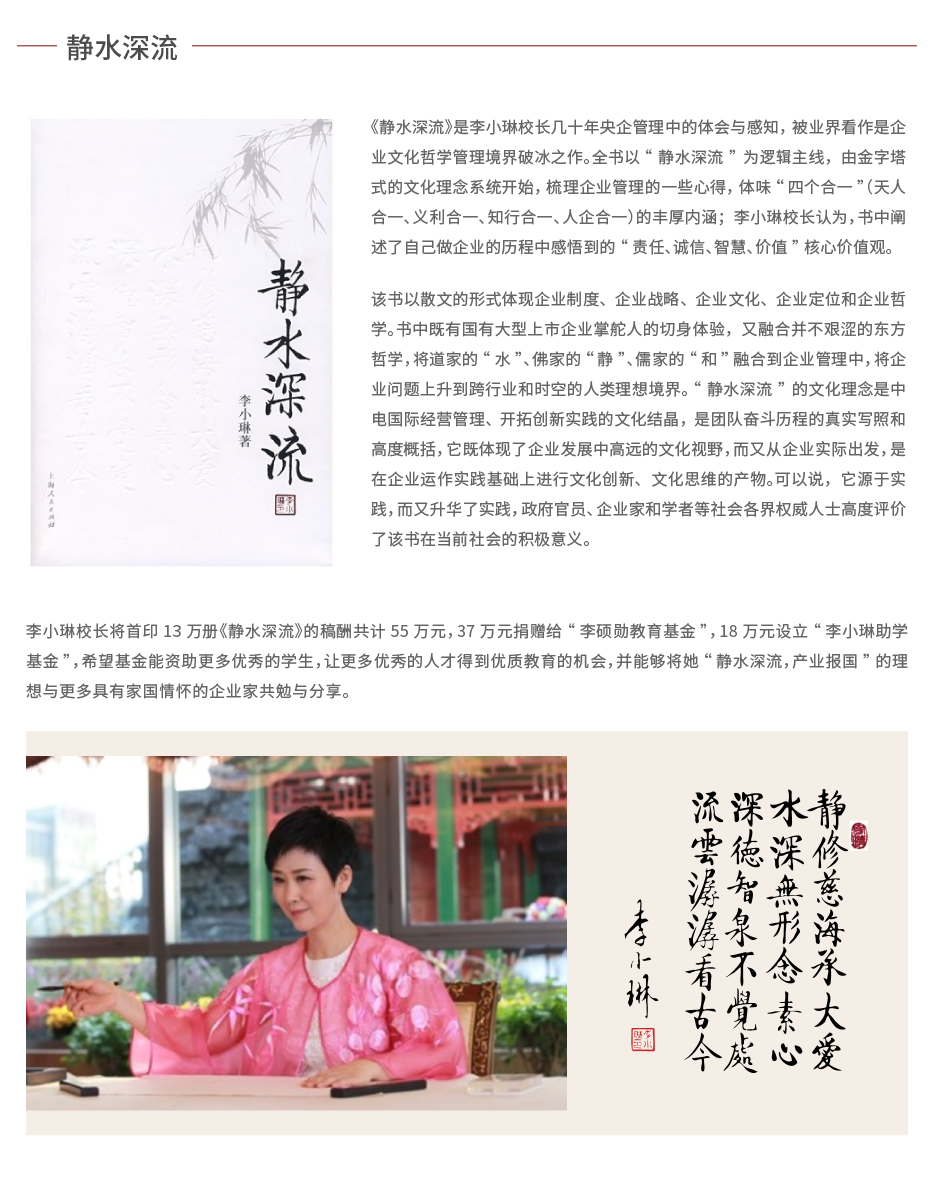 静水深流
静水深流
李小琳著
上海人民出版社
《静水深流》是李小琳校长几十年央企管理中的体会与感知，被业界看作是企
业文化哲学管理境界破冰之作。全书以“静水深流”为逻辑主线，由金字塔
式的文化理念系统开始，梳理企业管理的一些心得，体味“四个合一”（天人
合一、义利合一、知行合一、人企合一）的丰厚内涵；李小琳校长认为，书中阐
述了自己做企业的历程中感悟到的“责任、诚信、智慧、价值”核心价值观。
该书以散文的形式体现企业制度、企业战略、企业文化、企业定位和企业哲
学。书中既有国有大型上市企业掌舵人的切身体验，又融合并不艰涩的东方
哲学，将道家的“水”、佛家的“静”、儒家的“和”融合到企业管理中，将企
业问题上升到跨行业和时空的人类理想境界。“静水深流”的文化理念是中
电国际经营管理、开拓创新实践的文化结晶，是团队奋斗历程的真实写照和
高度概括，它既体现了企业发展中高远的文化视野，而又从企业实际出发，是
在企业运作实践基础上进行文化创新、文化思维的产物。可以说，它源于实
践，而又升华了实践，政府官员、企业家和学者等社会各界权威人士高度评价
了该书在当前社会的积极意义。
李小琳校长将首印 13 万册《静水深流》的稿酬共计 55 万元，37 万元捐赠给“李硕勋教育基金”，18 万元设立“李小琳助学
基金”，希望基金能资助更多优秀的学生，让更多优秀的人才得到优质教育的机会，并能够将她“静水深流，产业报国”的理
想与更多具有家国情怀的企业家共勉与分享。
静修慈海承大愛
水深無形念素心
深德智泉不覺處
流雲潺潺看古今
李小琳